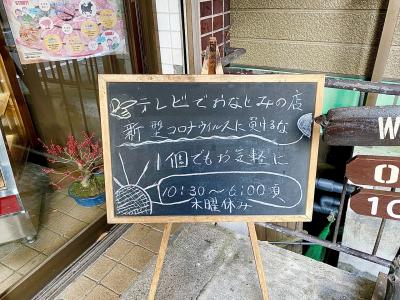 テレビでおなじみの店
新型コロナウイルスに負けるな
1個でもお気軽に
10:30〜6:00頃
木曜休み
W
O
10